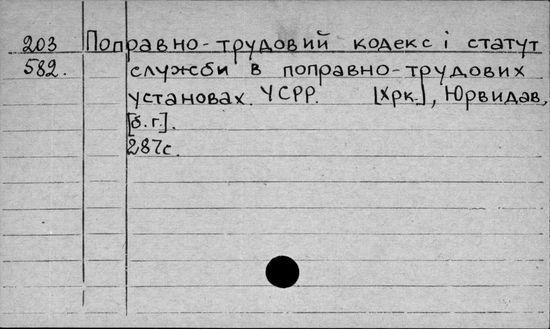 203 Поправно-трудовий кодекс і статут
582. служби в поправно-трудових
установах. УСРР. [Хрк.], Юрвидав,
[б.г.].
287с.